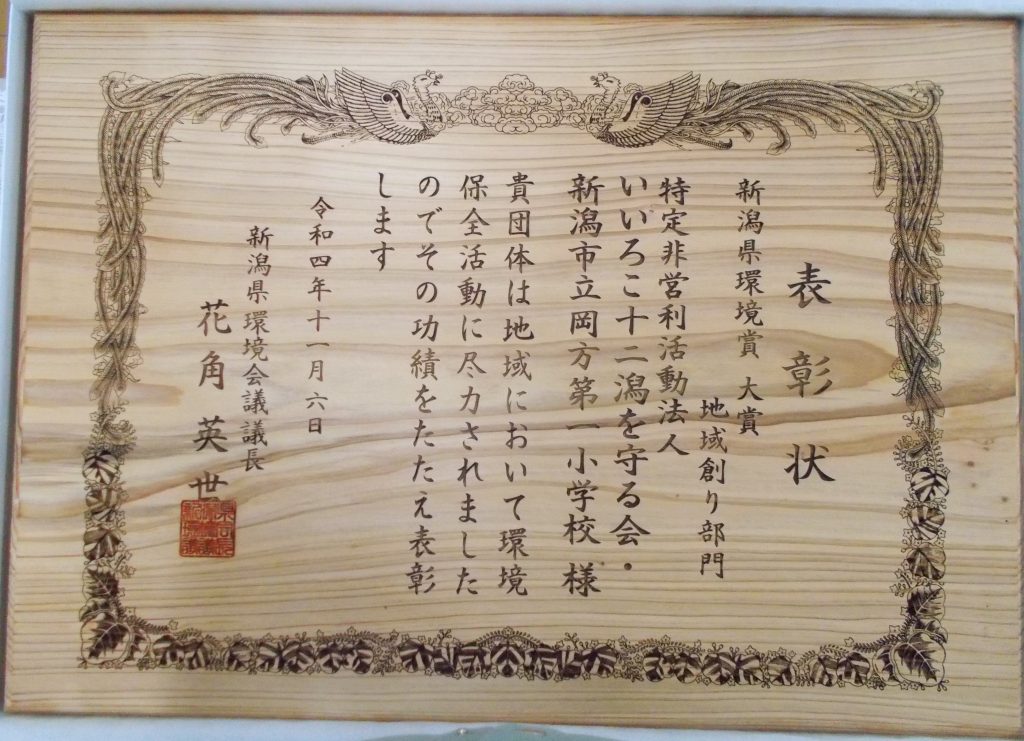 表彰状
新潟県環境賞 大賞
地域創り部門
特定非営利活動法人
いいろこ十二潟を守る会・
新潟市立岡方第一小学校 様
貴団体は地域において環境
保全活動に尽力されました
のでその功績をたたえ表彰
します
令和四年十一月六日
新潟県環境会議議長
花角英世